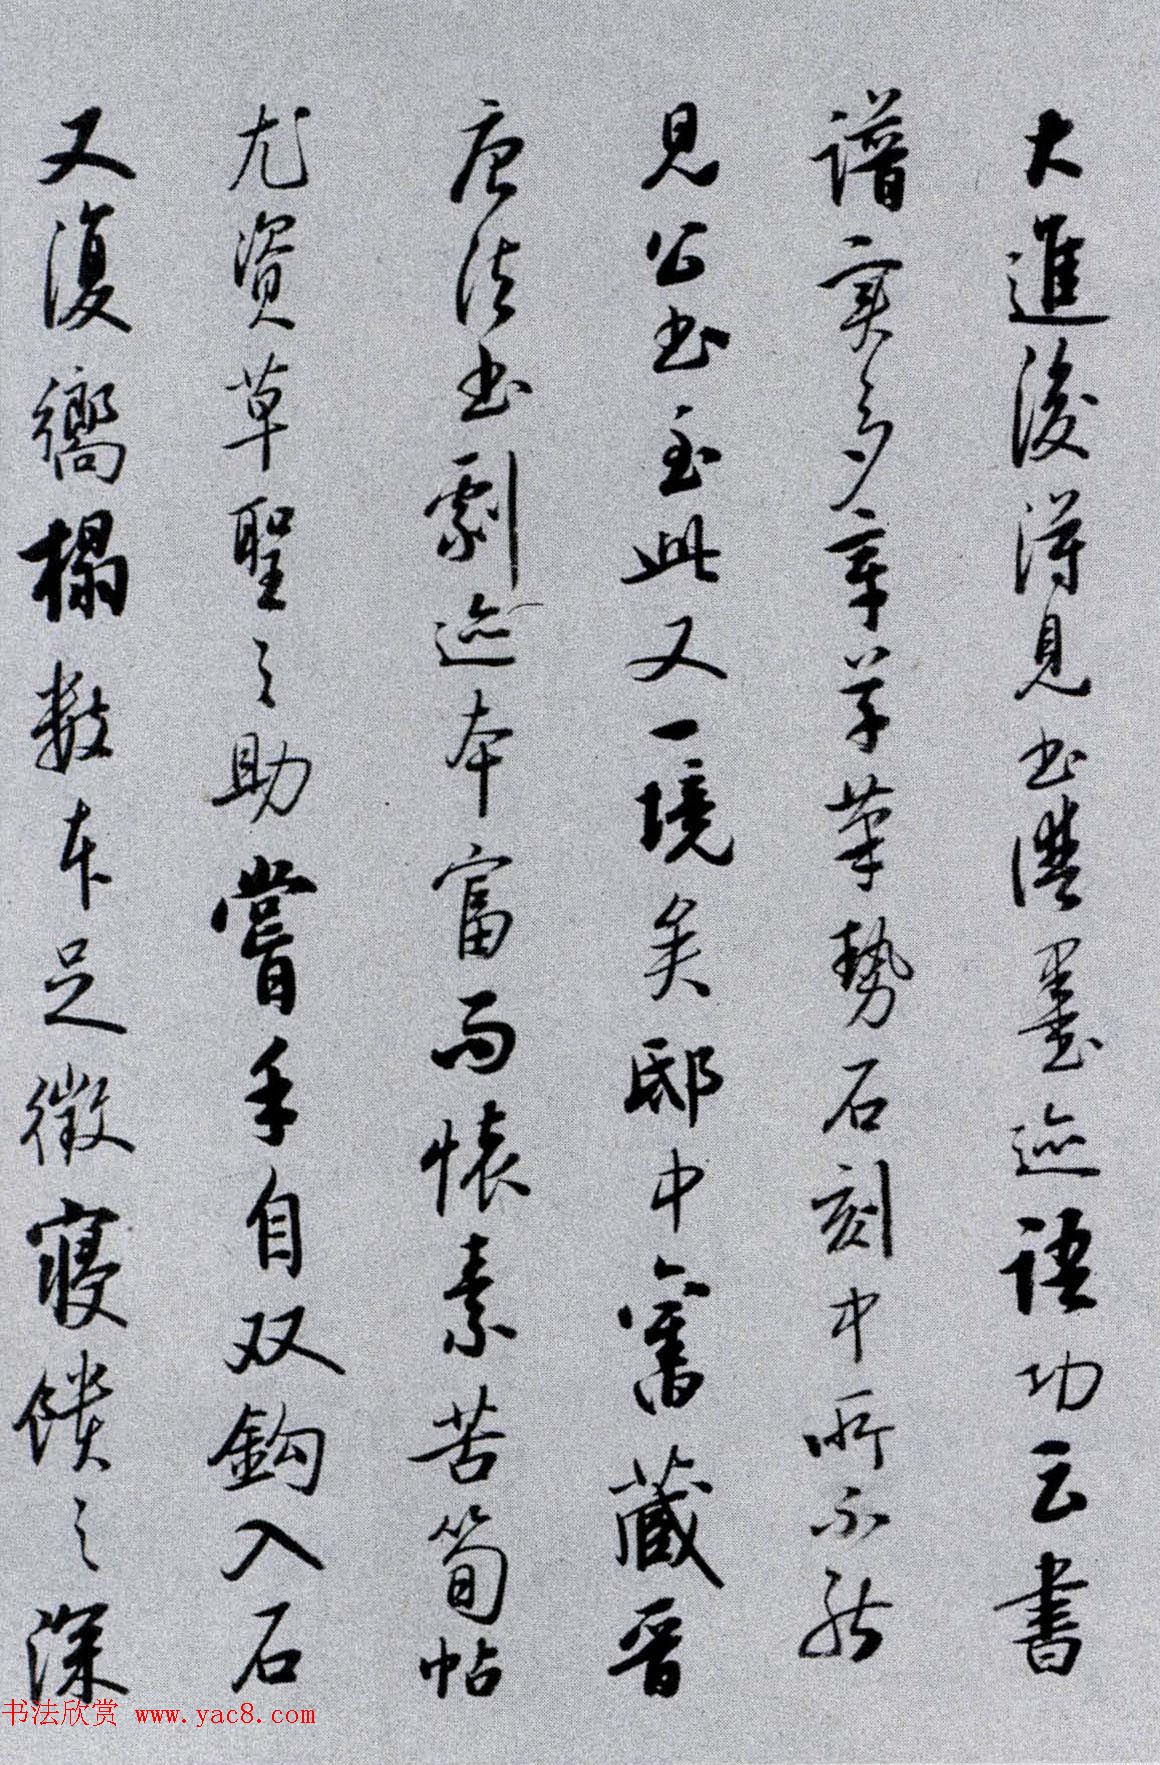 大進後得見書譜墨迹語功云書
譜实多章草筆勢石刻中所不能
見公书至此又一境矣邸中舊藏晉
唐法书劇迹本富而懷素苦筍帖
尤资草聖之助嘗手自双鈎入石
又復嚮榻数本足徵寢饋之深
书法欣赏 www.yac8.com